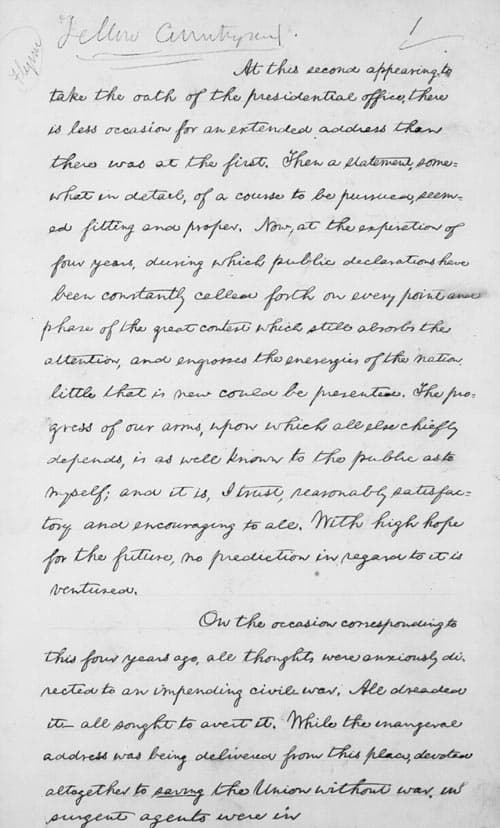 Fellow Countrymen.
1
At this second appearing to
take the oath of the presidential office, there
is less occasion for an extended address than
there was at the first. Then a statement, some=
what in detail, of a course to be pursued, seem=
ed fitting and proper. Now, at the expiration of
four years, during which public declarations have
been constantly called forth on every point and
phase of the great contest which still absorbs the
attention, and engrosses the energies of the nation,
little that is new could be presented. The pro=
gress of our arms, upon which all else chiefly
depends, is as well known to the public as to
myself; and it is, I trust, reasonably satisfac=
tory and encouraging to all. With high hope
for the future, no prediction in regard to it is
ventured.
On the occasion corresponding to
this four years ago, all thoughts were anxiously di=
rected to an impending civil war. All dreaded
it– all sought to avert it. While the inaugeral
address was being delivered from this place, devoted
altogether to saving the Union without war, in
surgent agents were in